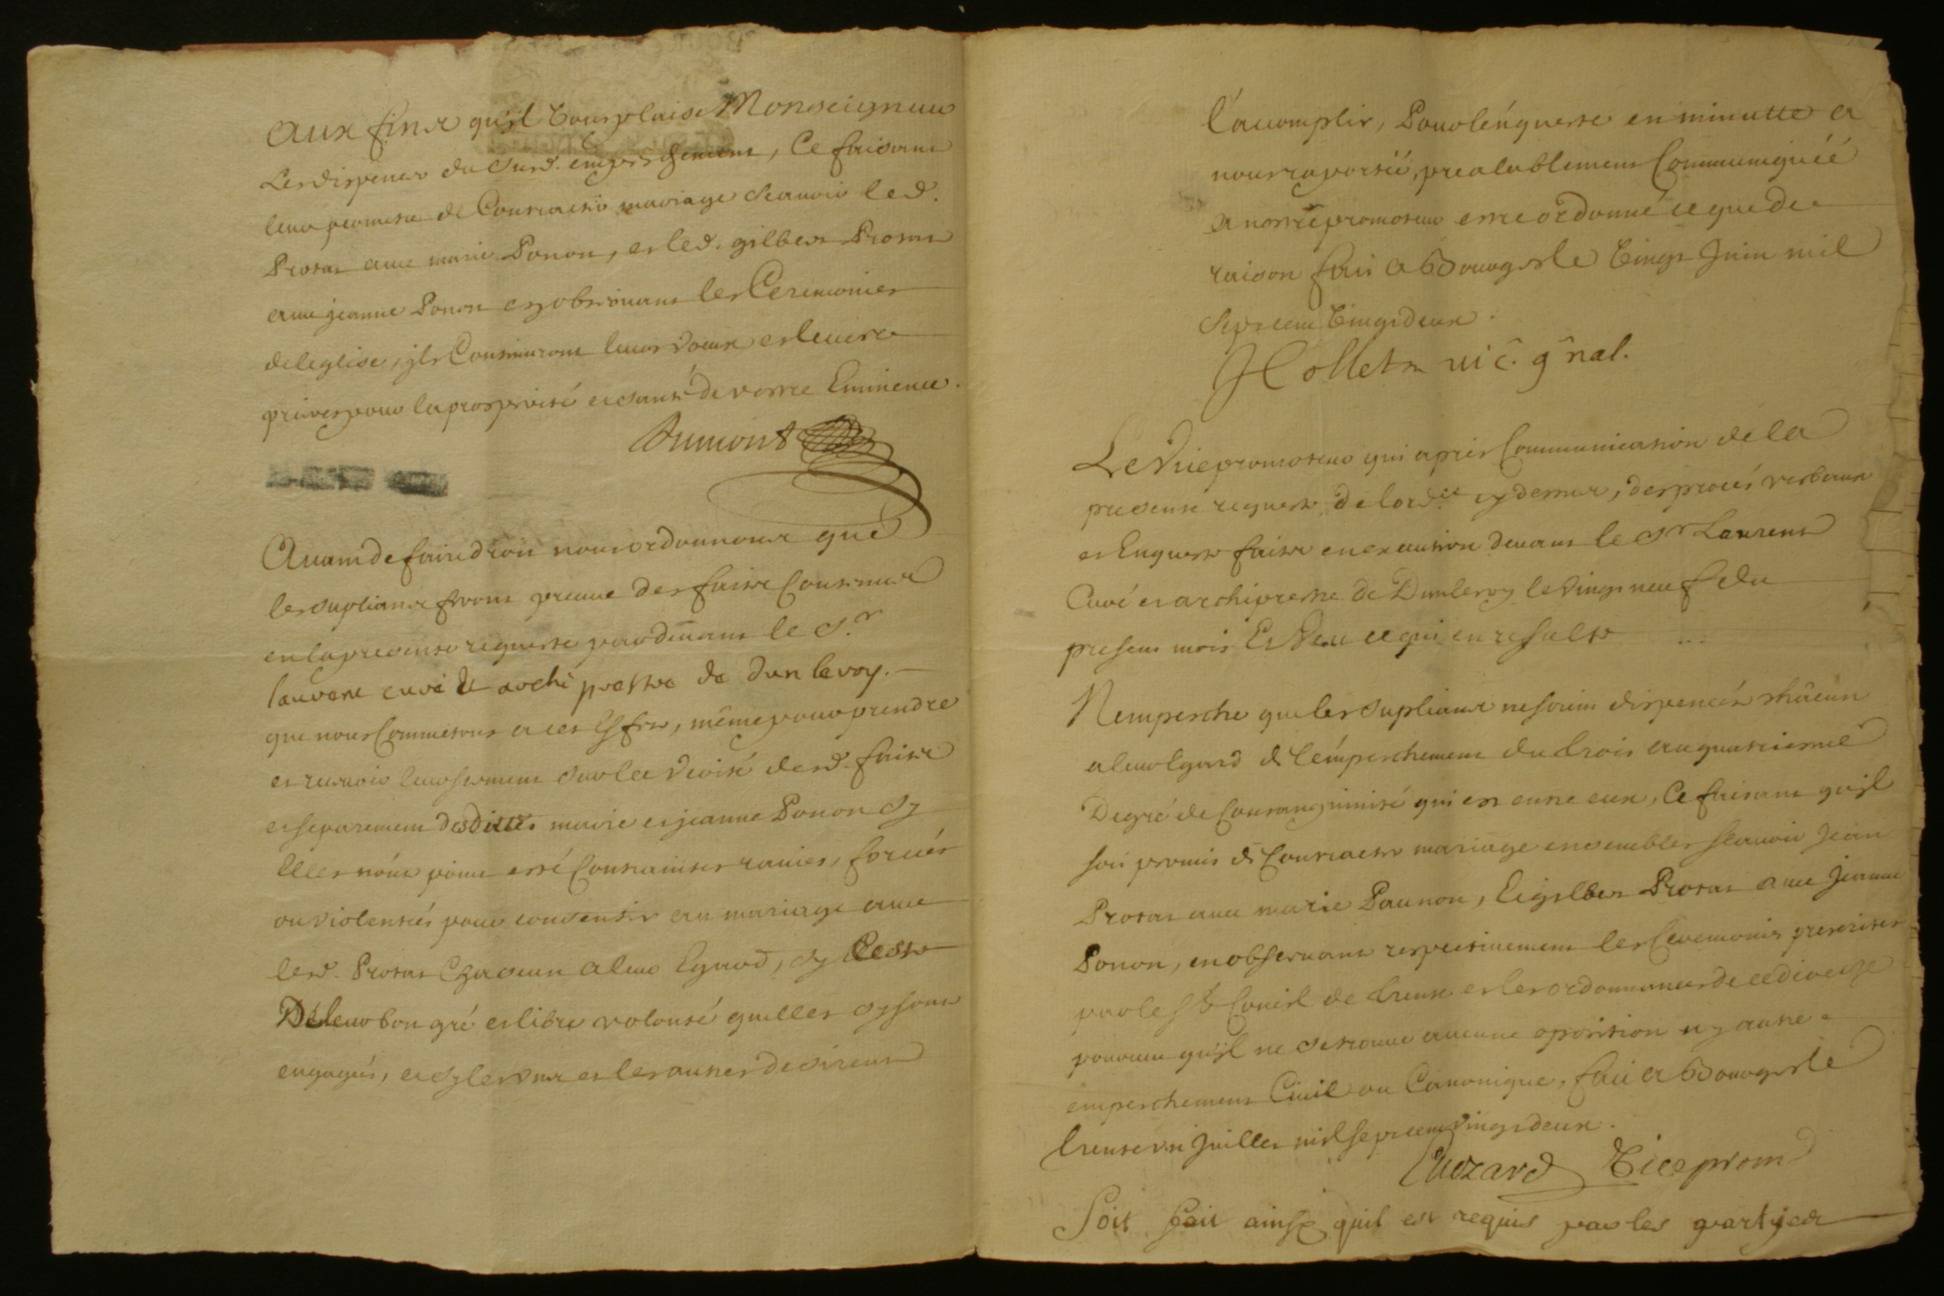 Aux fins qu'il vous plaise Monseigneur
Les dispenser du susd. empeschement, Ce faisant
leur permettre de Contracter mariage scavoir led.
Protat avec marie Ponon, et led. gilbert Protat
avec jeanne Ponon en observant les Ceremonies
de leglise, ils Continuront leurs voeux et leurs
prieres pour la prosperité et santé de vostre Eminence.
Dumont
Avant de faire droit nous ordonnons que
les supliants feront preuve des faits Contenus
en la presente requeste pardevant le Sr.
laurent curé et archi prestre de dun le roy.
que nous Commetons a cet Effet, même pour prendre
et recevoir leur serment sur la verité desd. faits
et separement desdittes marie et jeanne Ponon sy
Elles n'ont point esté Contraintes ravies, forcées
ou violentées pour consentir au mariage avec
lesd. Protat Chacun a leur Egard, sy Cest
De leur bon gré et libre volonté quelles sy sont
engagés, et sy les uns et les autres desirent
l'acomplir, Pour lenqueste en minutte et
nous raportée, prealablement Communiquée
a nostre promoteur estre ordonné ce que de
raison fait a Bourges le vingt Juin mil
sept cent vingt deux.
Hollet vic. gnal.
Le Vice promoteur qui a pris Communication de la
presente requeste de lord.ce cy dessus, des procés verbaux
et Enqueste faite en execution devant le Sr Laurent
Curé et archiprestre de Dunleroy le vingt neuf du
present mois Et Veu ce qui en resulte
N'empesche que les supliants ne soient dispencés chacun
a leur Egard de l'empeschement du trois au quatriesme
Degré de Consanguinité qui est entre eux, Ce faisant qu'il
soit promis de Contracter mariage ensembles scavoir Jean
Protat avec marie Paunon, Et gilbert Protat avec Jeanne
Ponon, en observant respectivement les Ceremonies prescrites
par le St Concile de trente et les ordonnances de ce dioceze
pourveu qu'il ne se trouve aucune oposition ny autre
empeschement Civil ou Canonique, fait a Bourges le
trente un Juillet mil sept cent vingt deux.
Vice prom
Soit fait ainsy quil est requis par les partyes